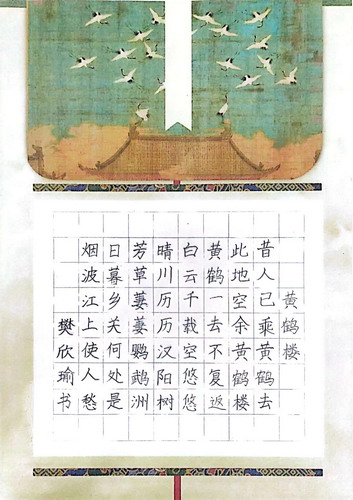 黄鹤楼
昔人已乘黄鹤去
此地空余黄鹤楼
黄鹤一去不复返
白云千载空悠悠
晴川历历汉阳树
芳草萋萋鹦鹉洲
日暮乡关何处是
烟波江上使人愁
樊欣瑜书